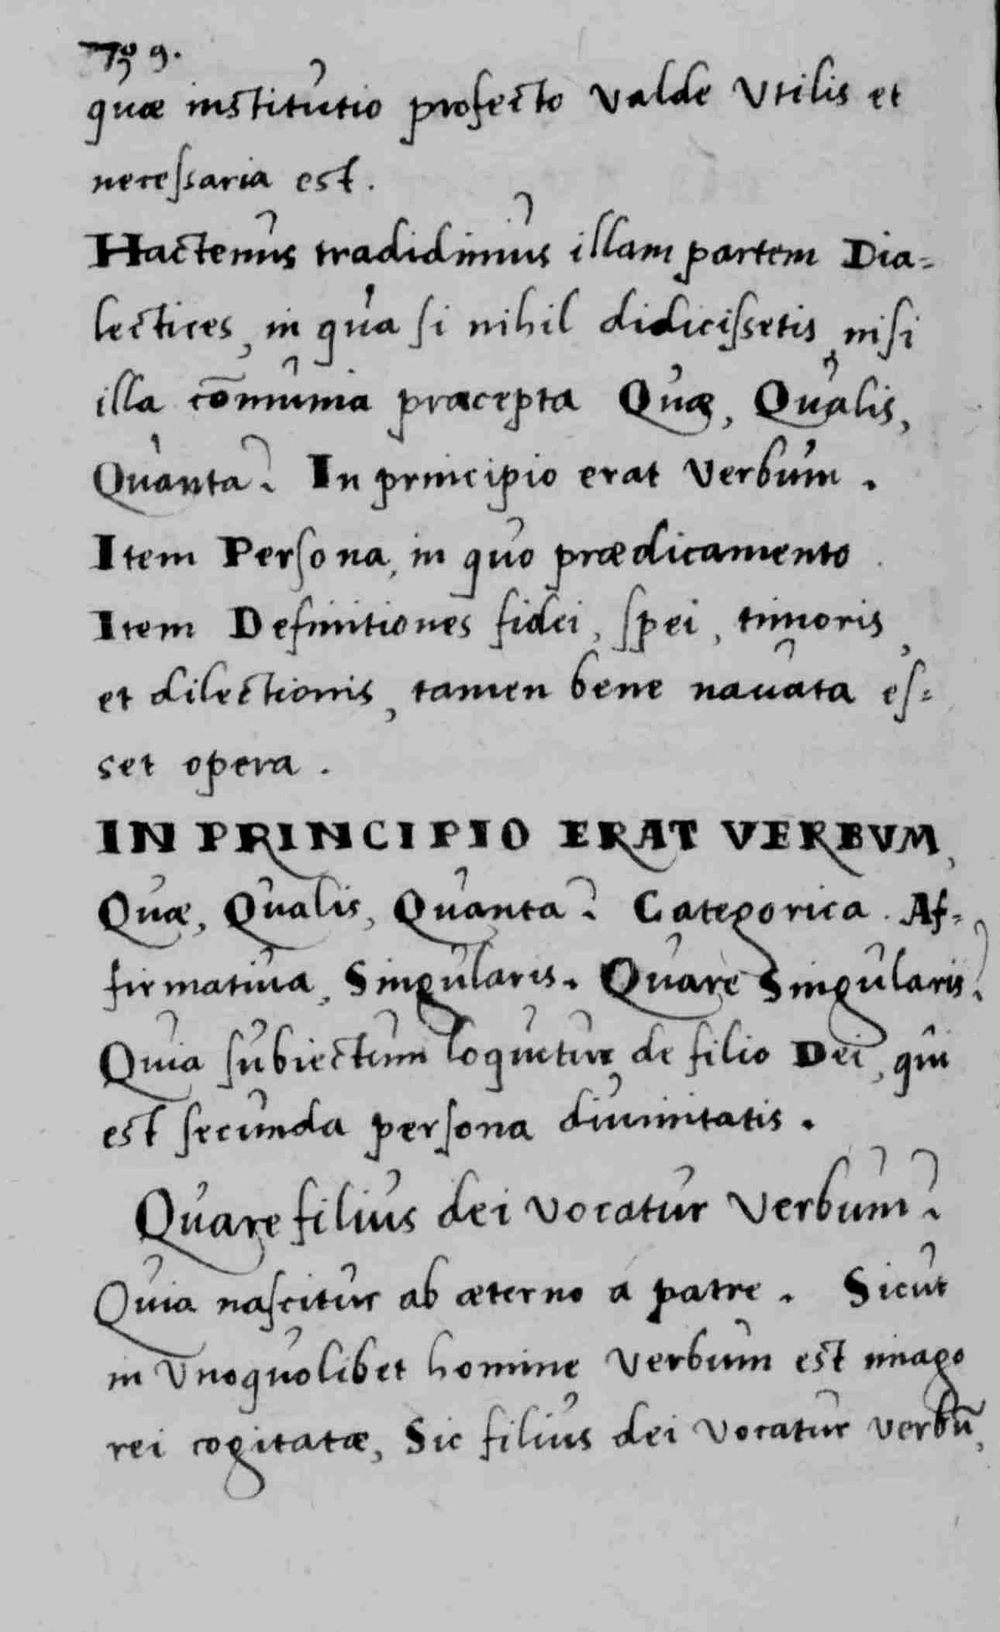 quæ institutio profecto valde vtilis et
necessaria est.
Hactenus tradidimus illam partem Dia=
lectices, in qua si nihil didicissetis, nisi
illa com̄unia præcepta Quæ, Qualis,
Quanta? In principio erat Verbum.
Item Persona, in quo prædicamento
Item Definitiones fidei, spei, timoris,
et dilectionis, tamen bene nauata es=
set opera.
IN PRINCIPIO ERAT VERBVM,
Quæ, Qualis, Quanta? Categorica. Af=
firmatiua, Singularis. Quare Singularis?
Quia subiectum loquitur de filio Dei, qui
est secunda persona diuinitatis.
Quare filius dei vocatur Verbum?
Quia nascitur ab æterno a patre. Sicut
in Vnoquolibet homine Verbum est imago
rei cogitatæ, Sic filius dei vocatur verbū,